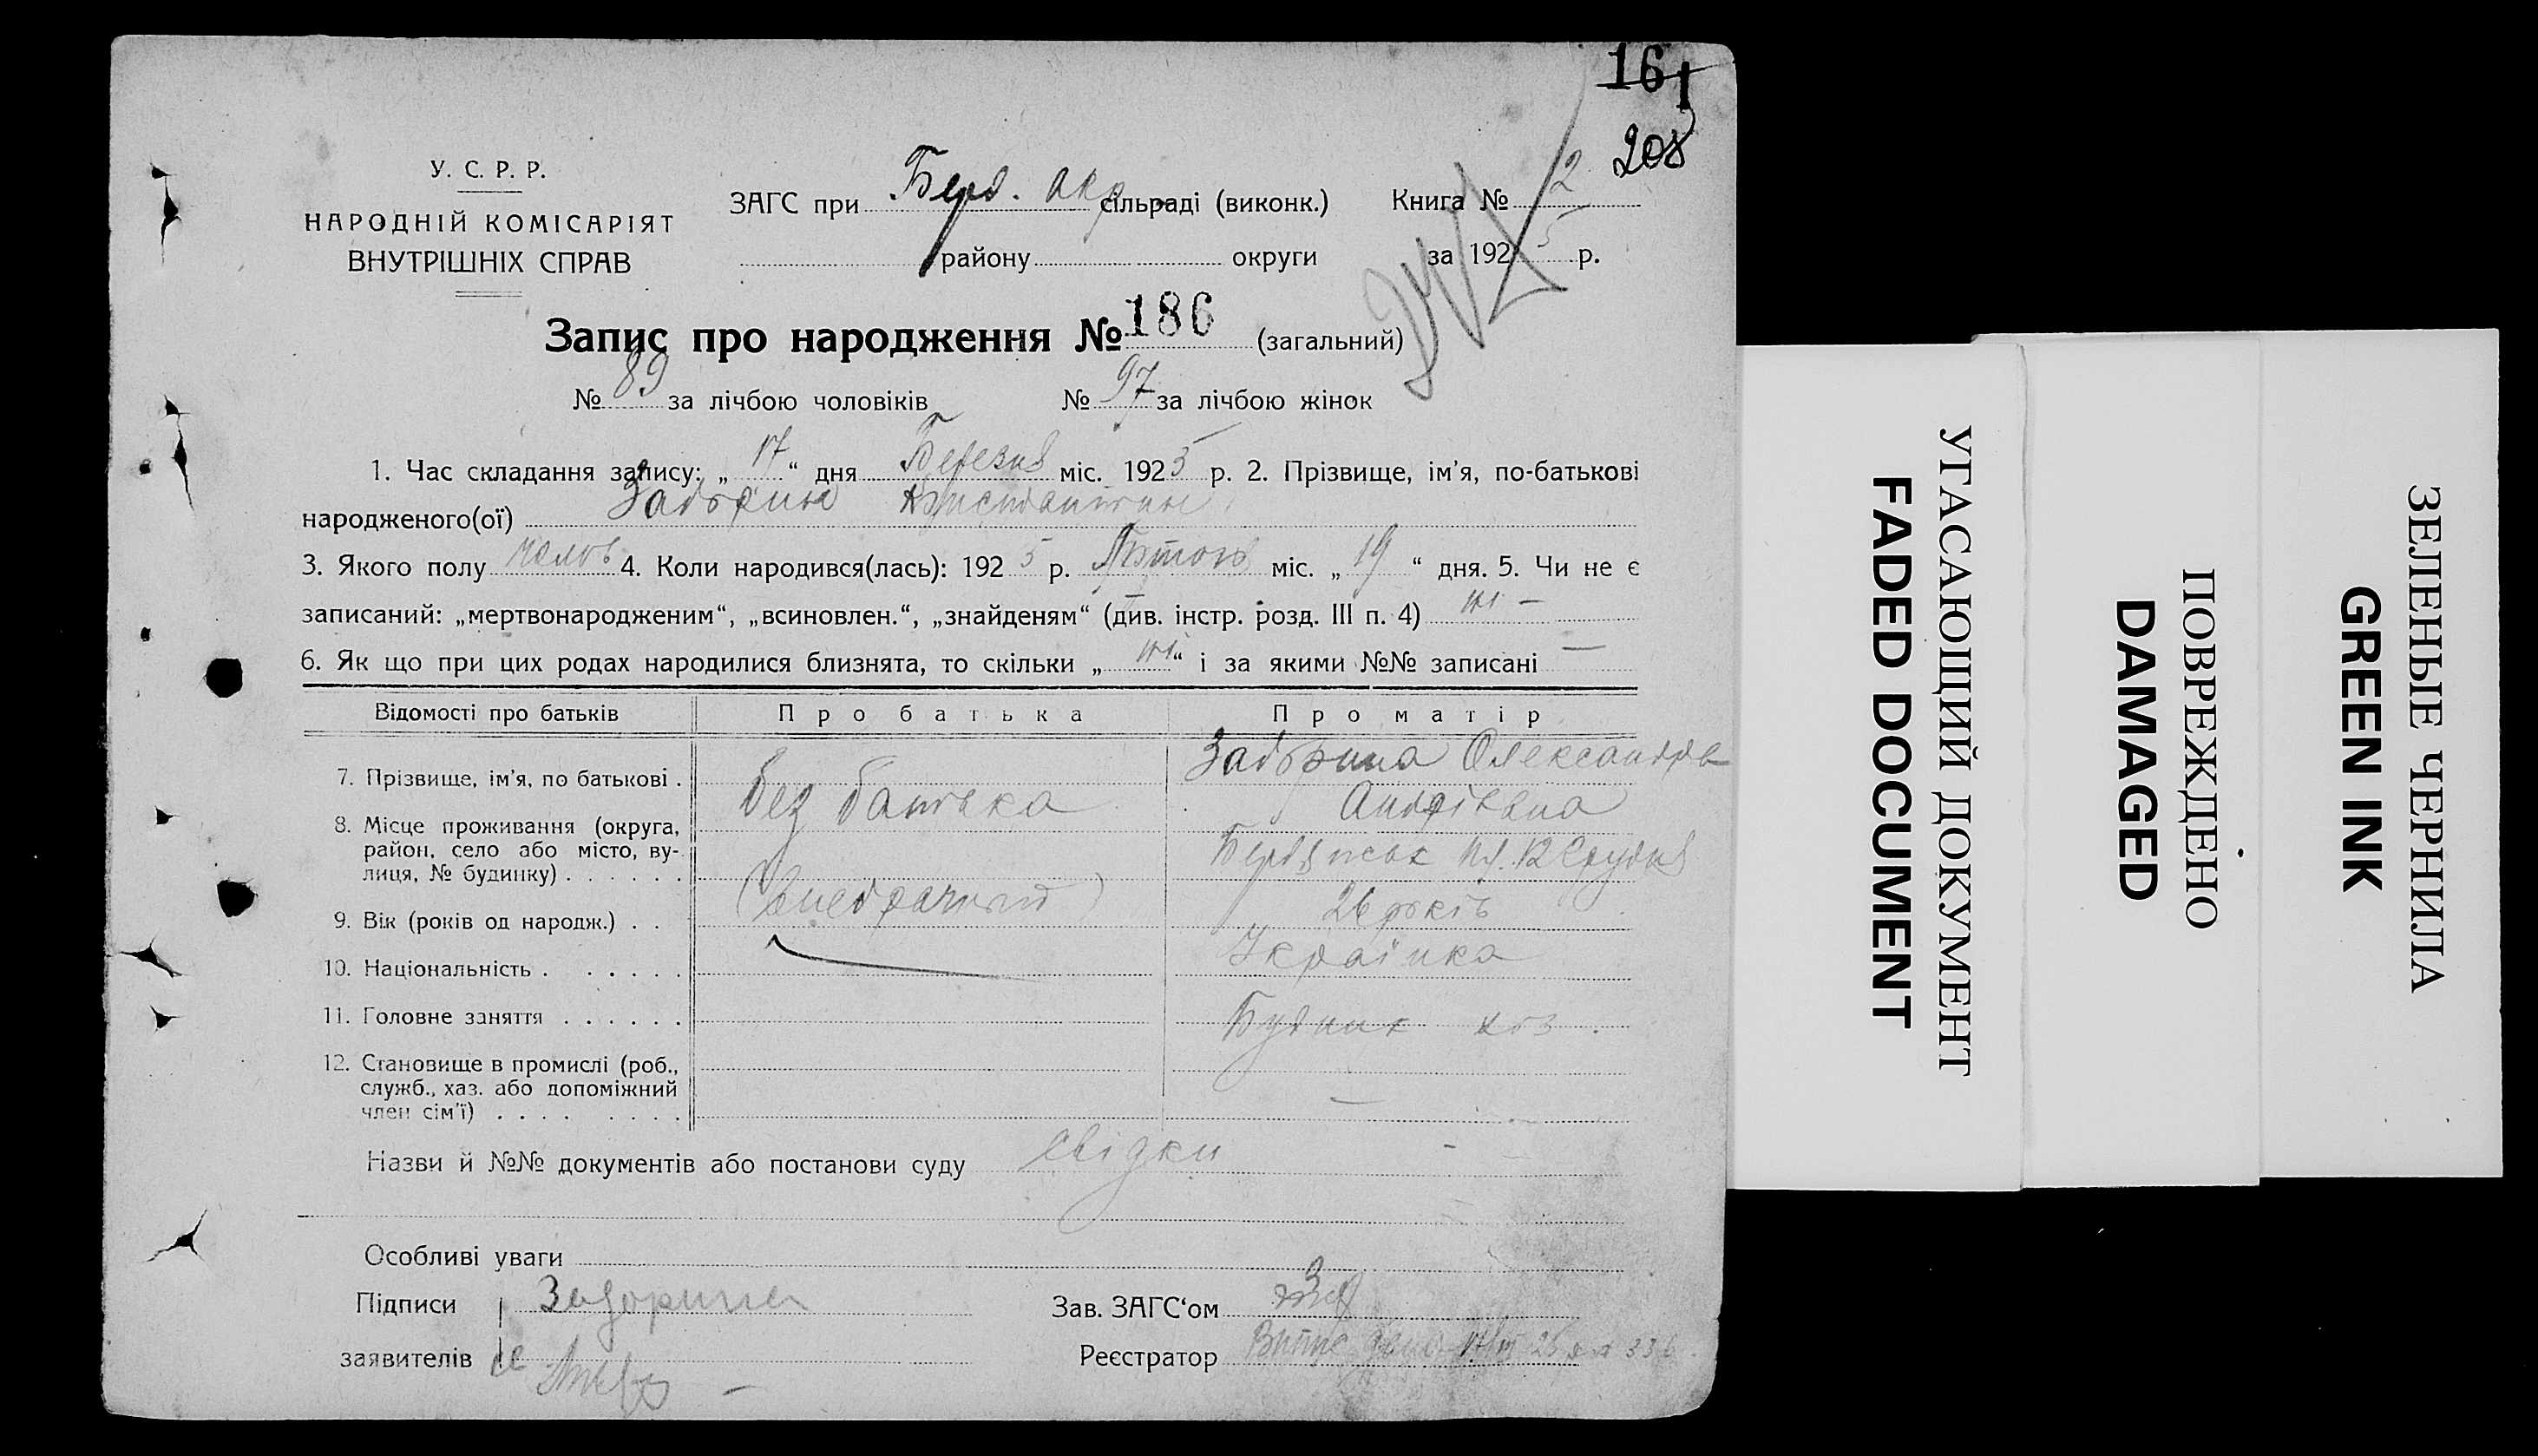 161
208
У. С. Р. Р.
НАРОДНІЙ КОМІСАРІЯТ
ВНУТРІШНІХ СПРАВ
ЗАГС при Берд. окр. сільраді (виконк.) Книга № 2
району округи за 1925 р.
Запис про народження № 186 (загальний)
№ 89 за лічбою чоловіків № 97 за лічбою жінок
1. Час складання запису: „17“ дня Березня міс. 1925 р. 2. Прізвище, ім’я, по-батькові
народженого(ої) Задорин Константин
3. Якого полу чолов 4. Коли народився(лась): 1925 р. Лютого міс. „19“ дня. 5. Чи не є
записаний: „мертвонародженим“, „всиновлен.“, „знайденям“ (див. інстр. розд. III п. 4) ні —
6. Як що при цих родах народилися близнята, то скільки „ні“ і за якими №№ записані —
Відомості про батьків Про батька Про матір
7. Прізвище, ім’я, по батькові . без батька Задорина Олександра
Андріївна
8. Місце проживання (округа, район, село або місто, вулиця, № будинку) . . . . . . Бердянськ 12 Грудня
9. Вік (років од народж.) . . (Внебрачный) 26 років
10. Національність . . . . . . Українка
11. Головне заняття . . . . . . Будинк хоз.
12. Становище в промислі (роб.,
служб., хаз. або допоміжний
член сім’ї) . . . . . . . . —
Назви й №№ документів або постанови суду свідки
Особливі уваги
Підписи Задорина Зав. ЗАГС‘ом
заявителів Реєстратор
УГАСАЮЩИЙ ДОКУМЕНТ
FADED DOCUMENT
ПОВРЕЖДЕНО
DAMAGED
ЗЕЛЕНЫЕ ЧЕРНИЛА
GREEN INK